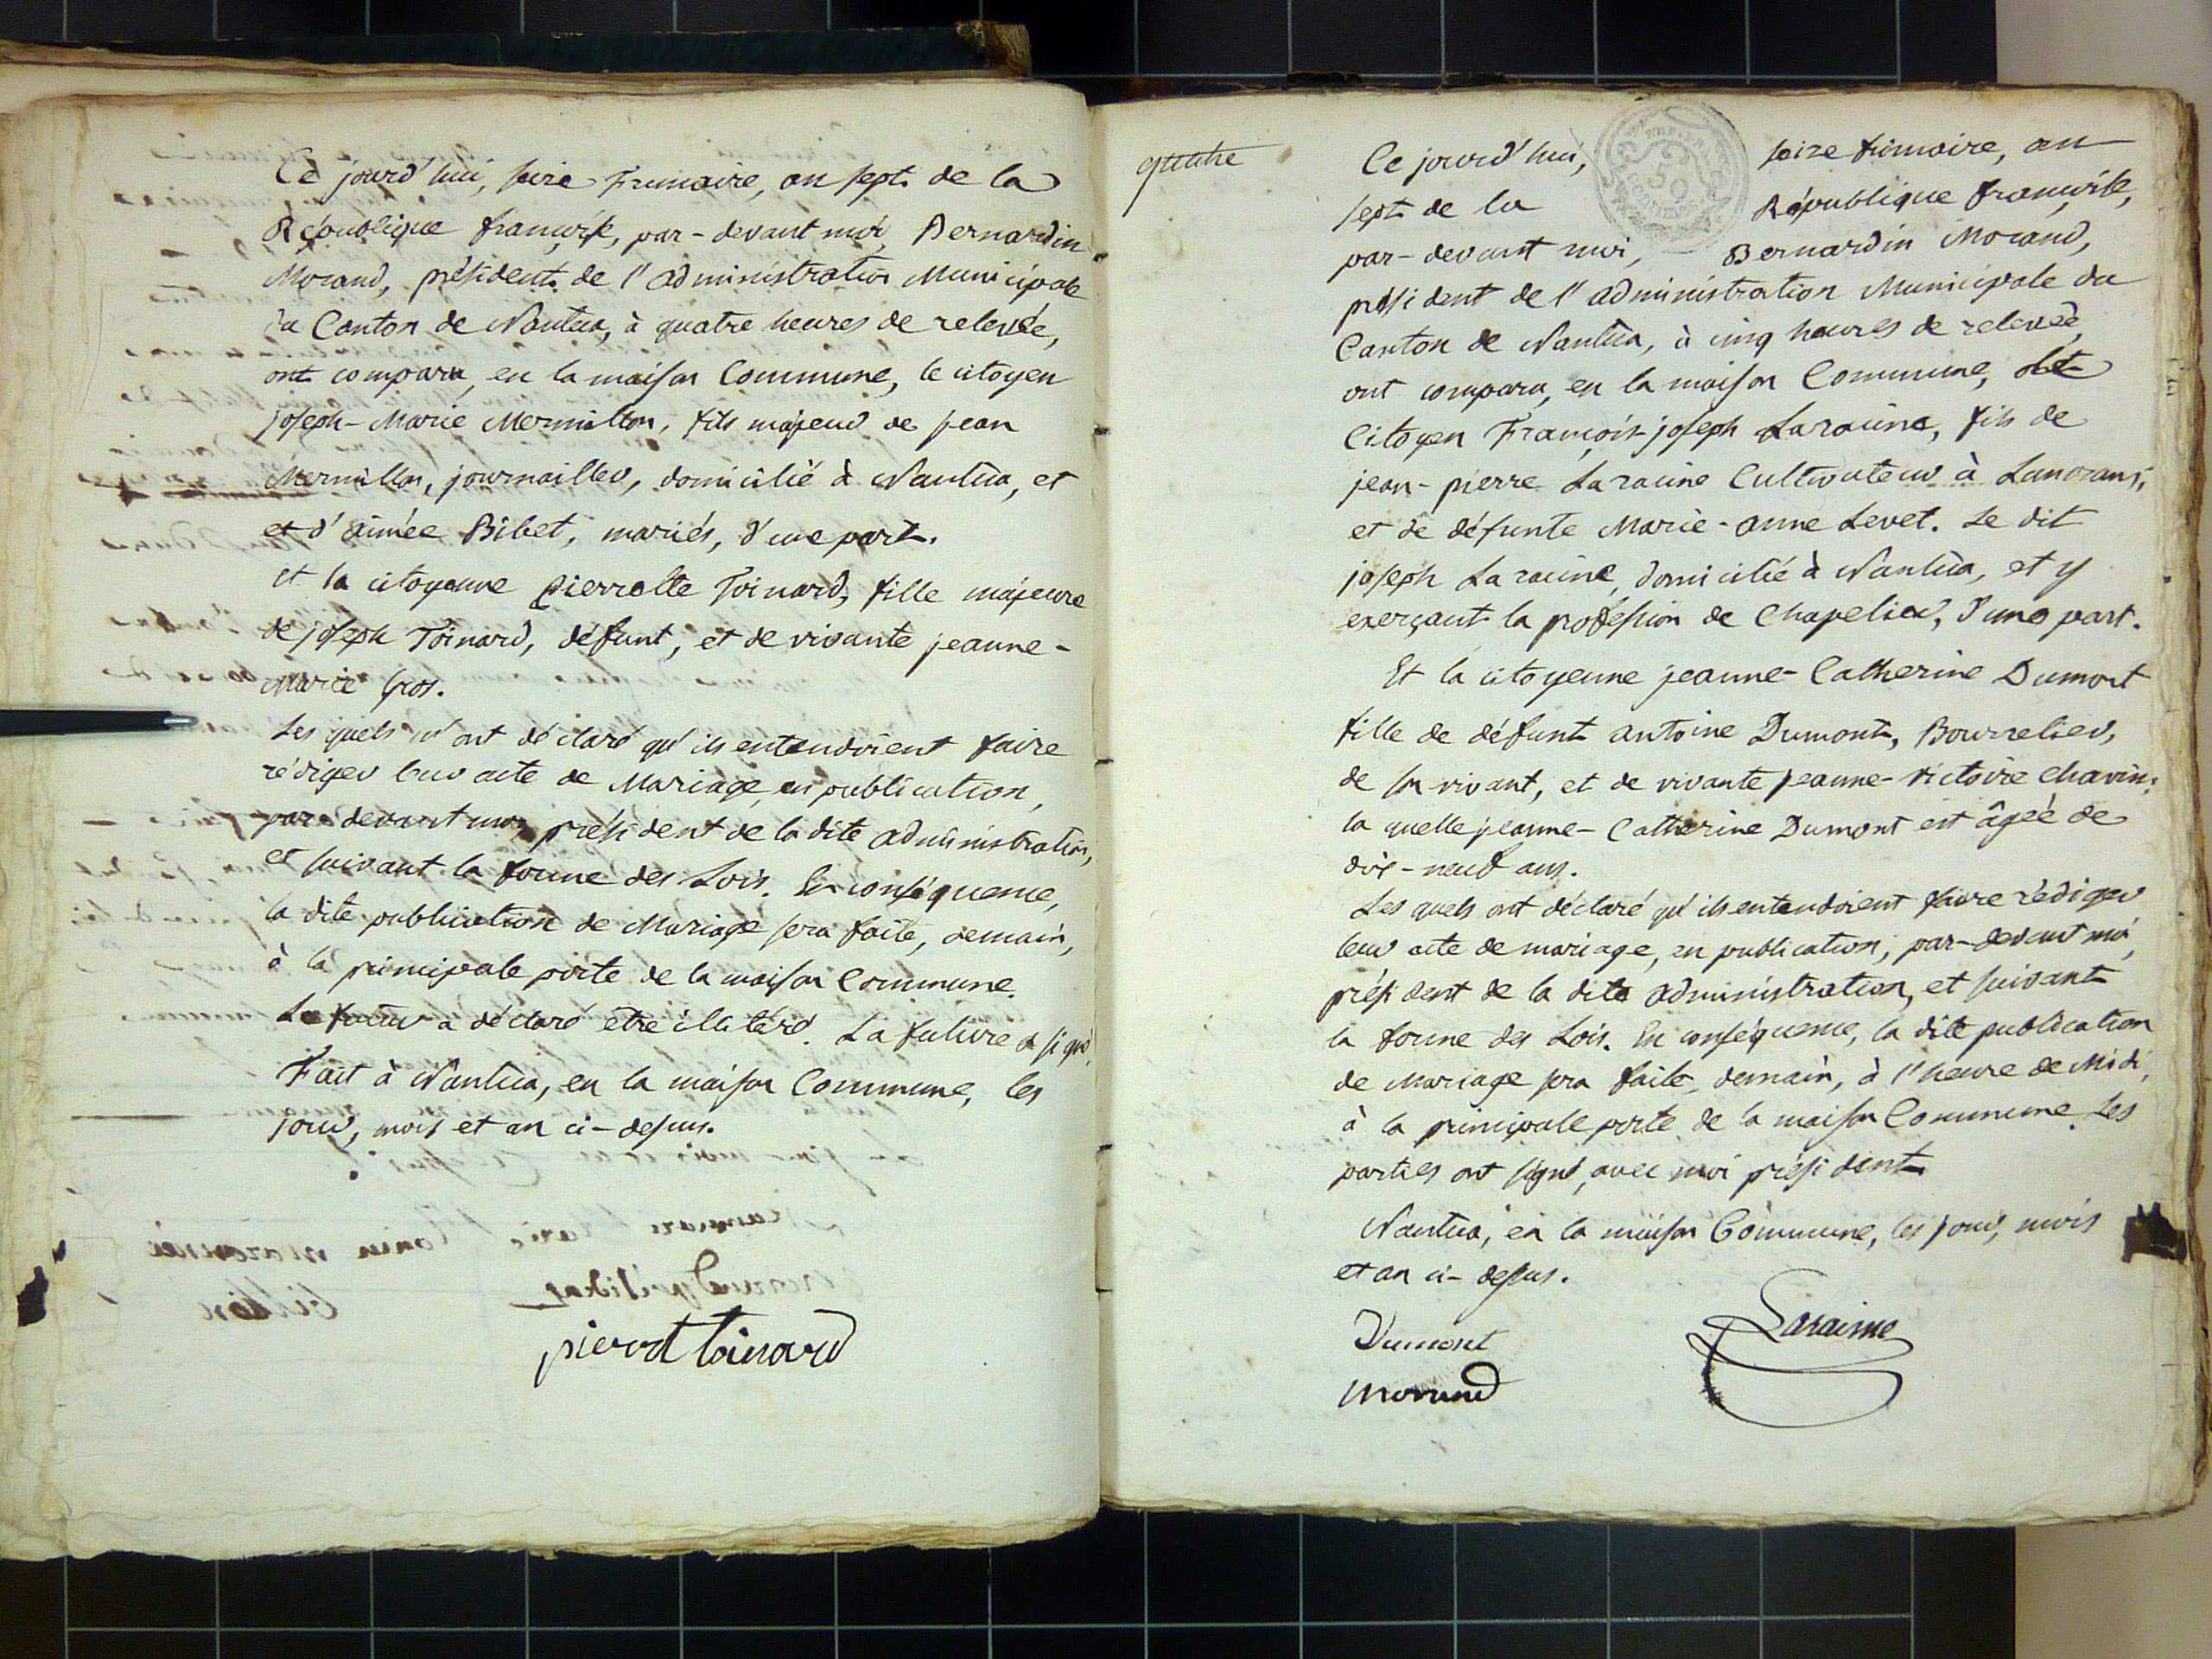 Ce jourd'hui, seize Frimaire, an sept de la
République française, par-devant moi, Bernardin
Morand, président de l'administration Municipale
du Canton de Nantua, à quatre heures de relevée,
ont comparu, en la maison Commune, le citoyen
joseph-Marie Mermillon, fils majeur de jean
Mermillon, journaillier, domicilié à Nantua, et
et d'aimée Bibet, mariés, d'une part.
et la citoyenne pierrette Toinard, fille majeure
de joseph Toinard, défunt, et de vivante jeanne-
Marie Gros.
Les quels m'ont déclaré qu'ils entendoient faire
rédiger leur acte de Mariage, en publication,
par-devant moi, président de la dite administration,
et suivant la forme des Lois. En conséquence,
la dite publication de Mariage sera faite, demain,
à la principale porte de la maison Commune.
Le futur a déclaré être illitéré. La future a signé.
Fait à Nantua, en la maison Commune, les
jour, mois et an ci-dessus.
pierret toinard
quatre
Ce jourd'hui, seize frimaire, an
sept de la République française,
par-devant moi, — Bernardin Morand,
président de l'administration Municipale du
Canton de Nantua, à cinq heures de relevée,
ont comparu, en la maison Commune, le
Citoyen François-joseph Laraine, fils de
jean-pierre Laraine Cultivateur à Lancrans,
et de défunte Marie-anne Levet. Le dit
joseph Laraine, domicilié à Nantua, et y
exerçant la profession de Chapelier, d'une part.
Et la citoyenne jeanne-Catherine Dumont
fille de défunt antoine Dumont, Bourrelier,
de son vivant, et de vivante jeanne-victoire Chavin;
la quelle jeanne-Catherine Dumont est âgée de
dix-neuf ans.
Les quels ont déclaré qu'ils entendoient faire rédiger
leur acte de mariage, en publication, par-devant moi,
président de la dite administration, et suivant
la forme des Lois. En conséquence, la dite publication
de Mariage sera faite, demain, à l'heure de Midi,
à la principale porte de la maison Commune. Les
parties ont signé, avec moi président
Nantua, en la maison Commune, les jour, mois
et an ci-dessus.
Dumont Laraine
Morand